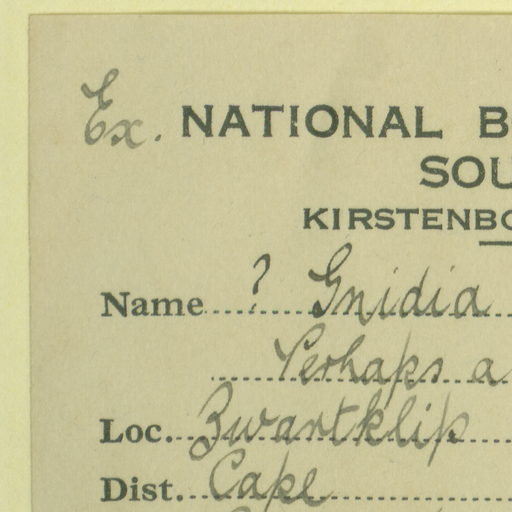 Ex. NATIONAL B
SOU
KIRSTENBO
Name ? Gnidia
Perhaps a
Loc. Zwartklip
Dist. Cape